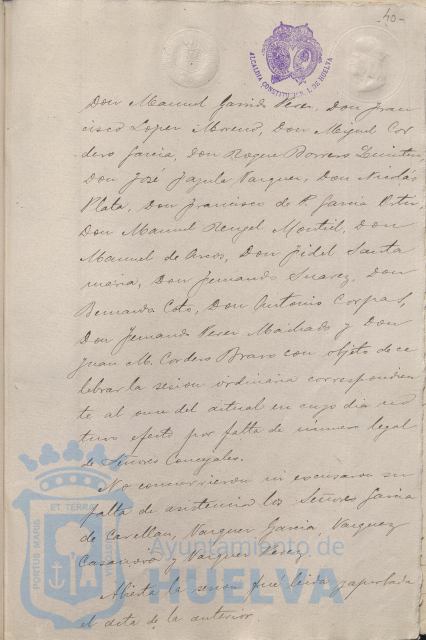 40-
ALCALDIA CONSTITUCIONAL DE HUELVA
Don Manuel Garrido Perez, Don Fran
cisco Lopez Moreno, Don Miguel Cor
dero Garcia, Don Roque Borrero
Don José Vazquez, Don Nicolás
Plata, Don Francisco de P. Garcia Ortiz,
Don Manuel Rengel Montiel, Don
Manuel de Arcos, Don Fidel Santa
maria, Don Fernando Suarez, Don
Bernardo Coto, Don Antonio Corpas,
Don Fernando Perez Machado y Don
Juan M. Cordero Bravo con objeto de ce
lebrar la sesion ordinaria correspondien
te al once del actual en cuyo dia no
tuvo efecto por falta de número legal
de Señores Concejales.
No concurrieron ni excusaron su
falta de asistencia los Señores Garcia
de Carellan, Vazquez Garcia, Vazquez
Casanova y Vazquez Perez
Abierta la sesion fué leida y aprobada
el acta de la anterior.
PORTUS MARIS ET TERRAE CUSTODIA
Ayuntamiento de
HUELVA